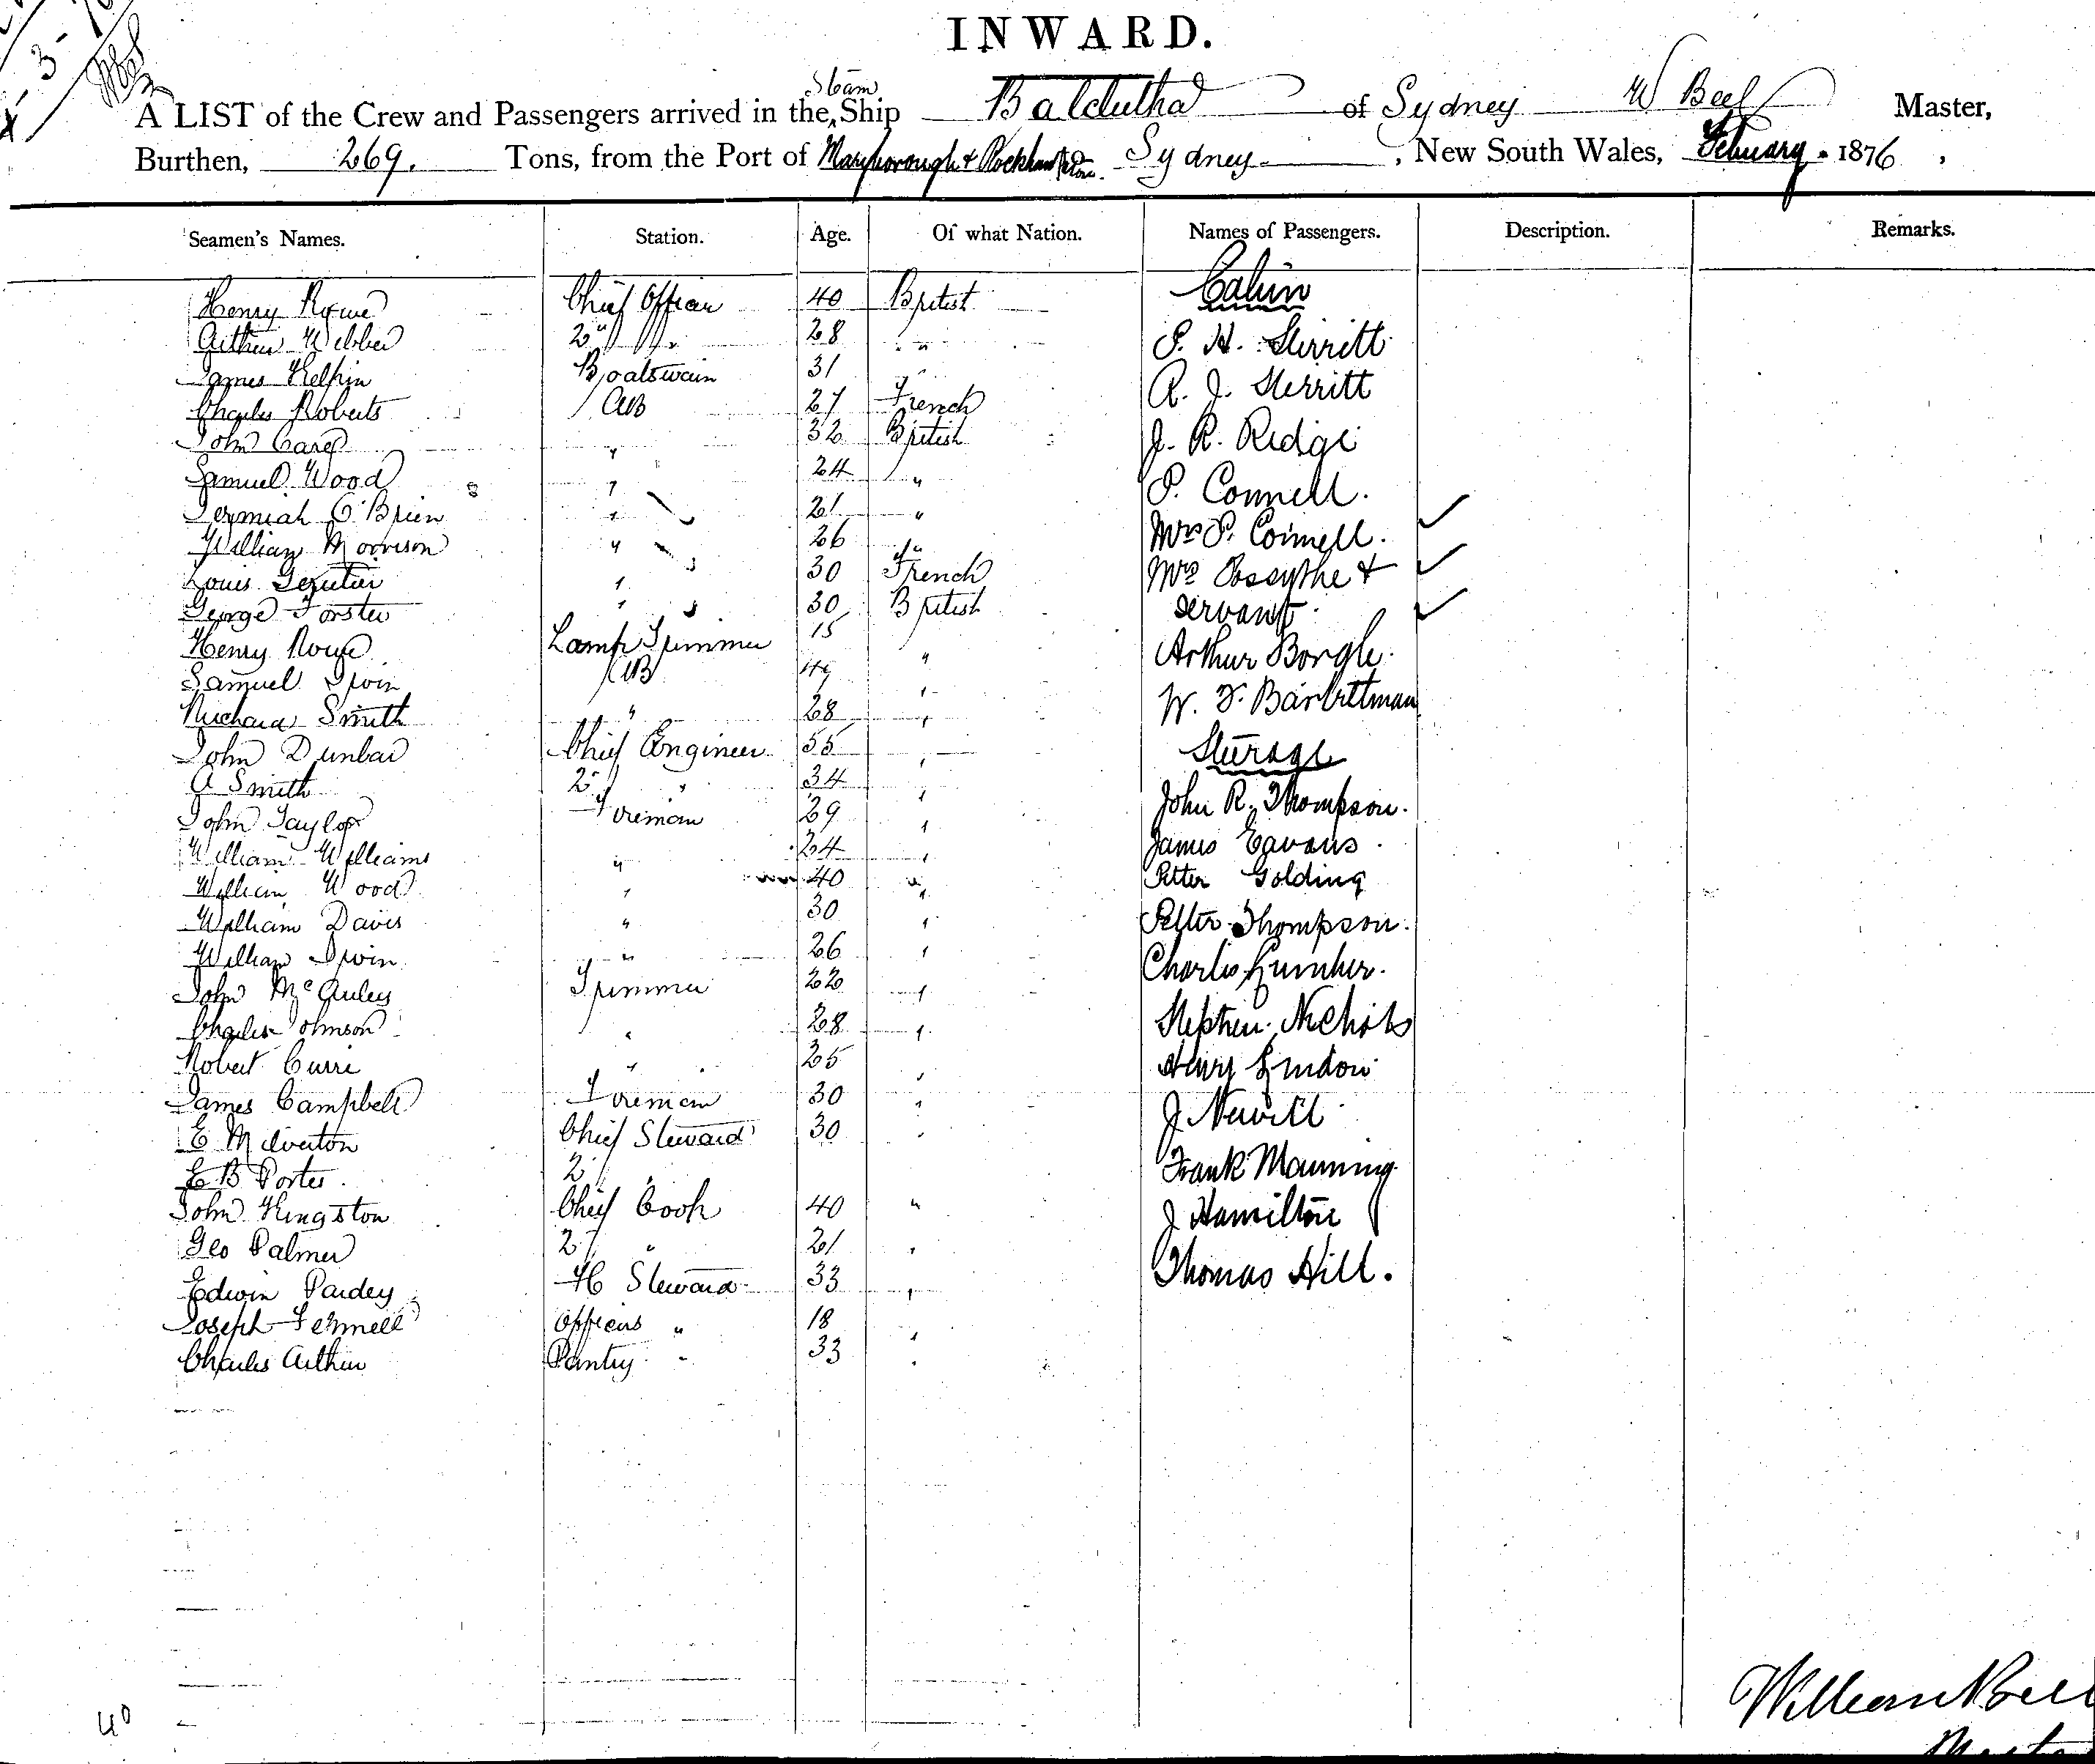 INWARD.
A LIST of the Crew and Passengers arrived in the Steam Ship Balclutha of Sydney W Beel Master,
Burthen, 269. Tons, from the Port of Maryborough & Rockhampton to Sydney , New South Wales, February 1876 ,
Seamen's Names. Station. Age. Of what Nation. Names of Passengers. Description. Remarks.
Henry Chief Officer 40 British Cabin
Arthur Webber 2 " " 28 " S. H. Sterritt
James Boatswain 31 " R. J. Sterritt
Charles Roberts AB 27 French J. R. Ridge
John 32 British
Samuel Wood " 24 " P. Connell.
Jeremiah O'Brien " 21 " Mrs P. Connell.
William Morrison " 26 " Mrs &
Louis " 30 French servant
George Forster " 30 British
Henry Lamp Trimmer 15 " Arthur
Samuel Irvin AB "
Richard Smith " 28 " W. F.
John Dunbar Chief Engineer 55 " Steerage
A Smith 2 " 34 " John R. Thompson.
John Taylor Fireman 29 "
William Williams " 24 " James
William Wood " 40 " Petter Golding
William Davis " 30 " Petter Thompson.
William Irvin " 26 " Charles
John McAuley Trimmer 22 "
Charles Johnson " 28 " Stephen Nichols
Robert Currie " 25 " Henry
James Campbell Fireman 30 " J
E Milverton Chief Steward 30 "
E B Porter 2 " Frank Manning
John Kingston Chief Cook 40 " J Hamilton
Geo Palmer 2 " 21 "
Edwin Pardey Steward 33 " Thomas Hill.
Joseph Fennell Officers " 18 "
Charles Arthur Pantry " 33 "
40
William Beel